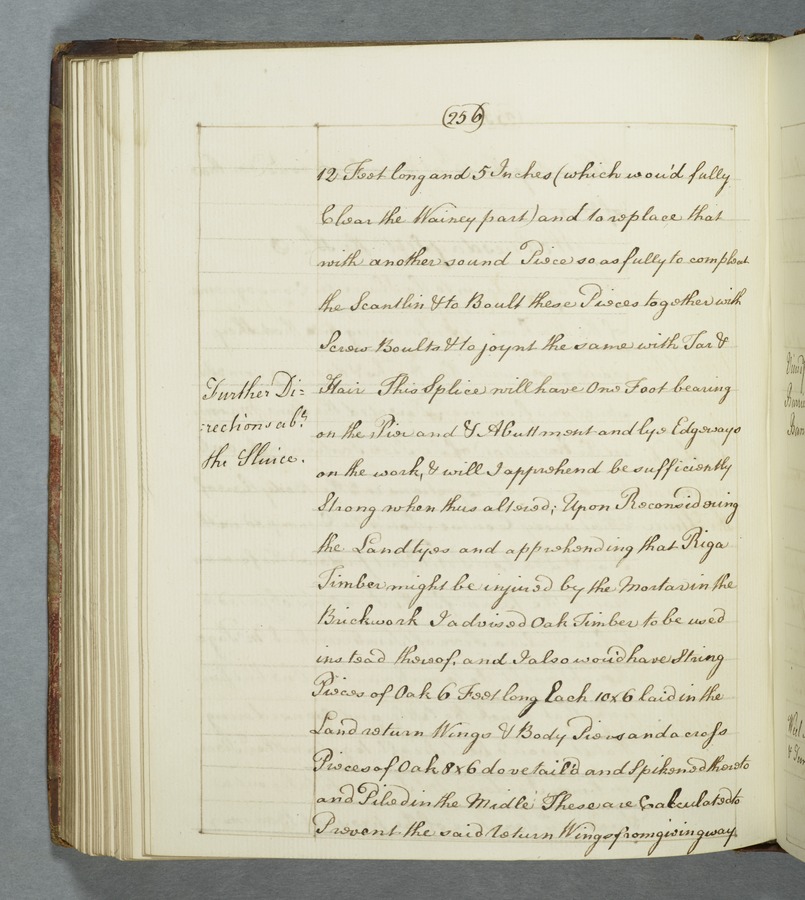 (256)
12 Feet long and 5 Inches (which wou'd fully
Clear the Wainey part) and to replace that
with another sound Piece so as fully to compleat
the Scantlin & to Boult these Pieces together with
Screw Boults & to joynt the same with Tar &
Further Di=
Hair This Splice will have One Foot bearing
=rections abt.
on the Pier and & Abuttment and lye Edgeways
the Sluice.
on the work, & will I apprehend be sufficiently
Strong when thus altered; Upon Reconsidering
the Land tyes and apprehending that Riga
Timber might be injured by the Mortar in the
Brickwork I advised Oak Timber to be used
instead thereof, and I also wou'd have String
Pieces of Oak 6 Feet long Each 10x6 laid in the
Land return Wings & Body Piers and across
Pieces of Oak 8x6 dovetail'd and Spikened thereto
and Piled in the Midle These are Calculated to
Prevent the said return Wings from giving way